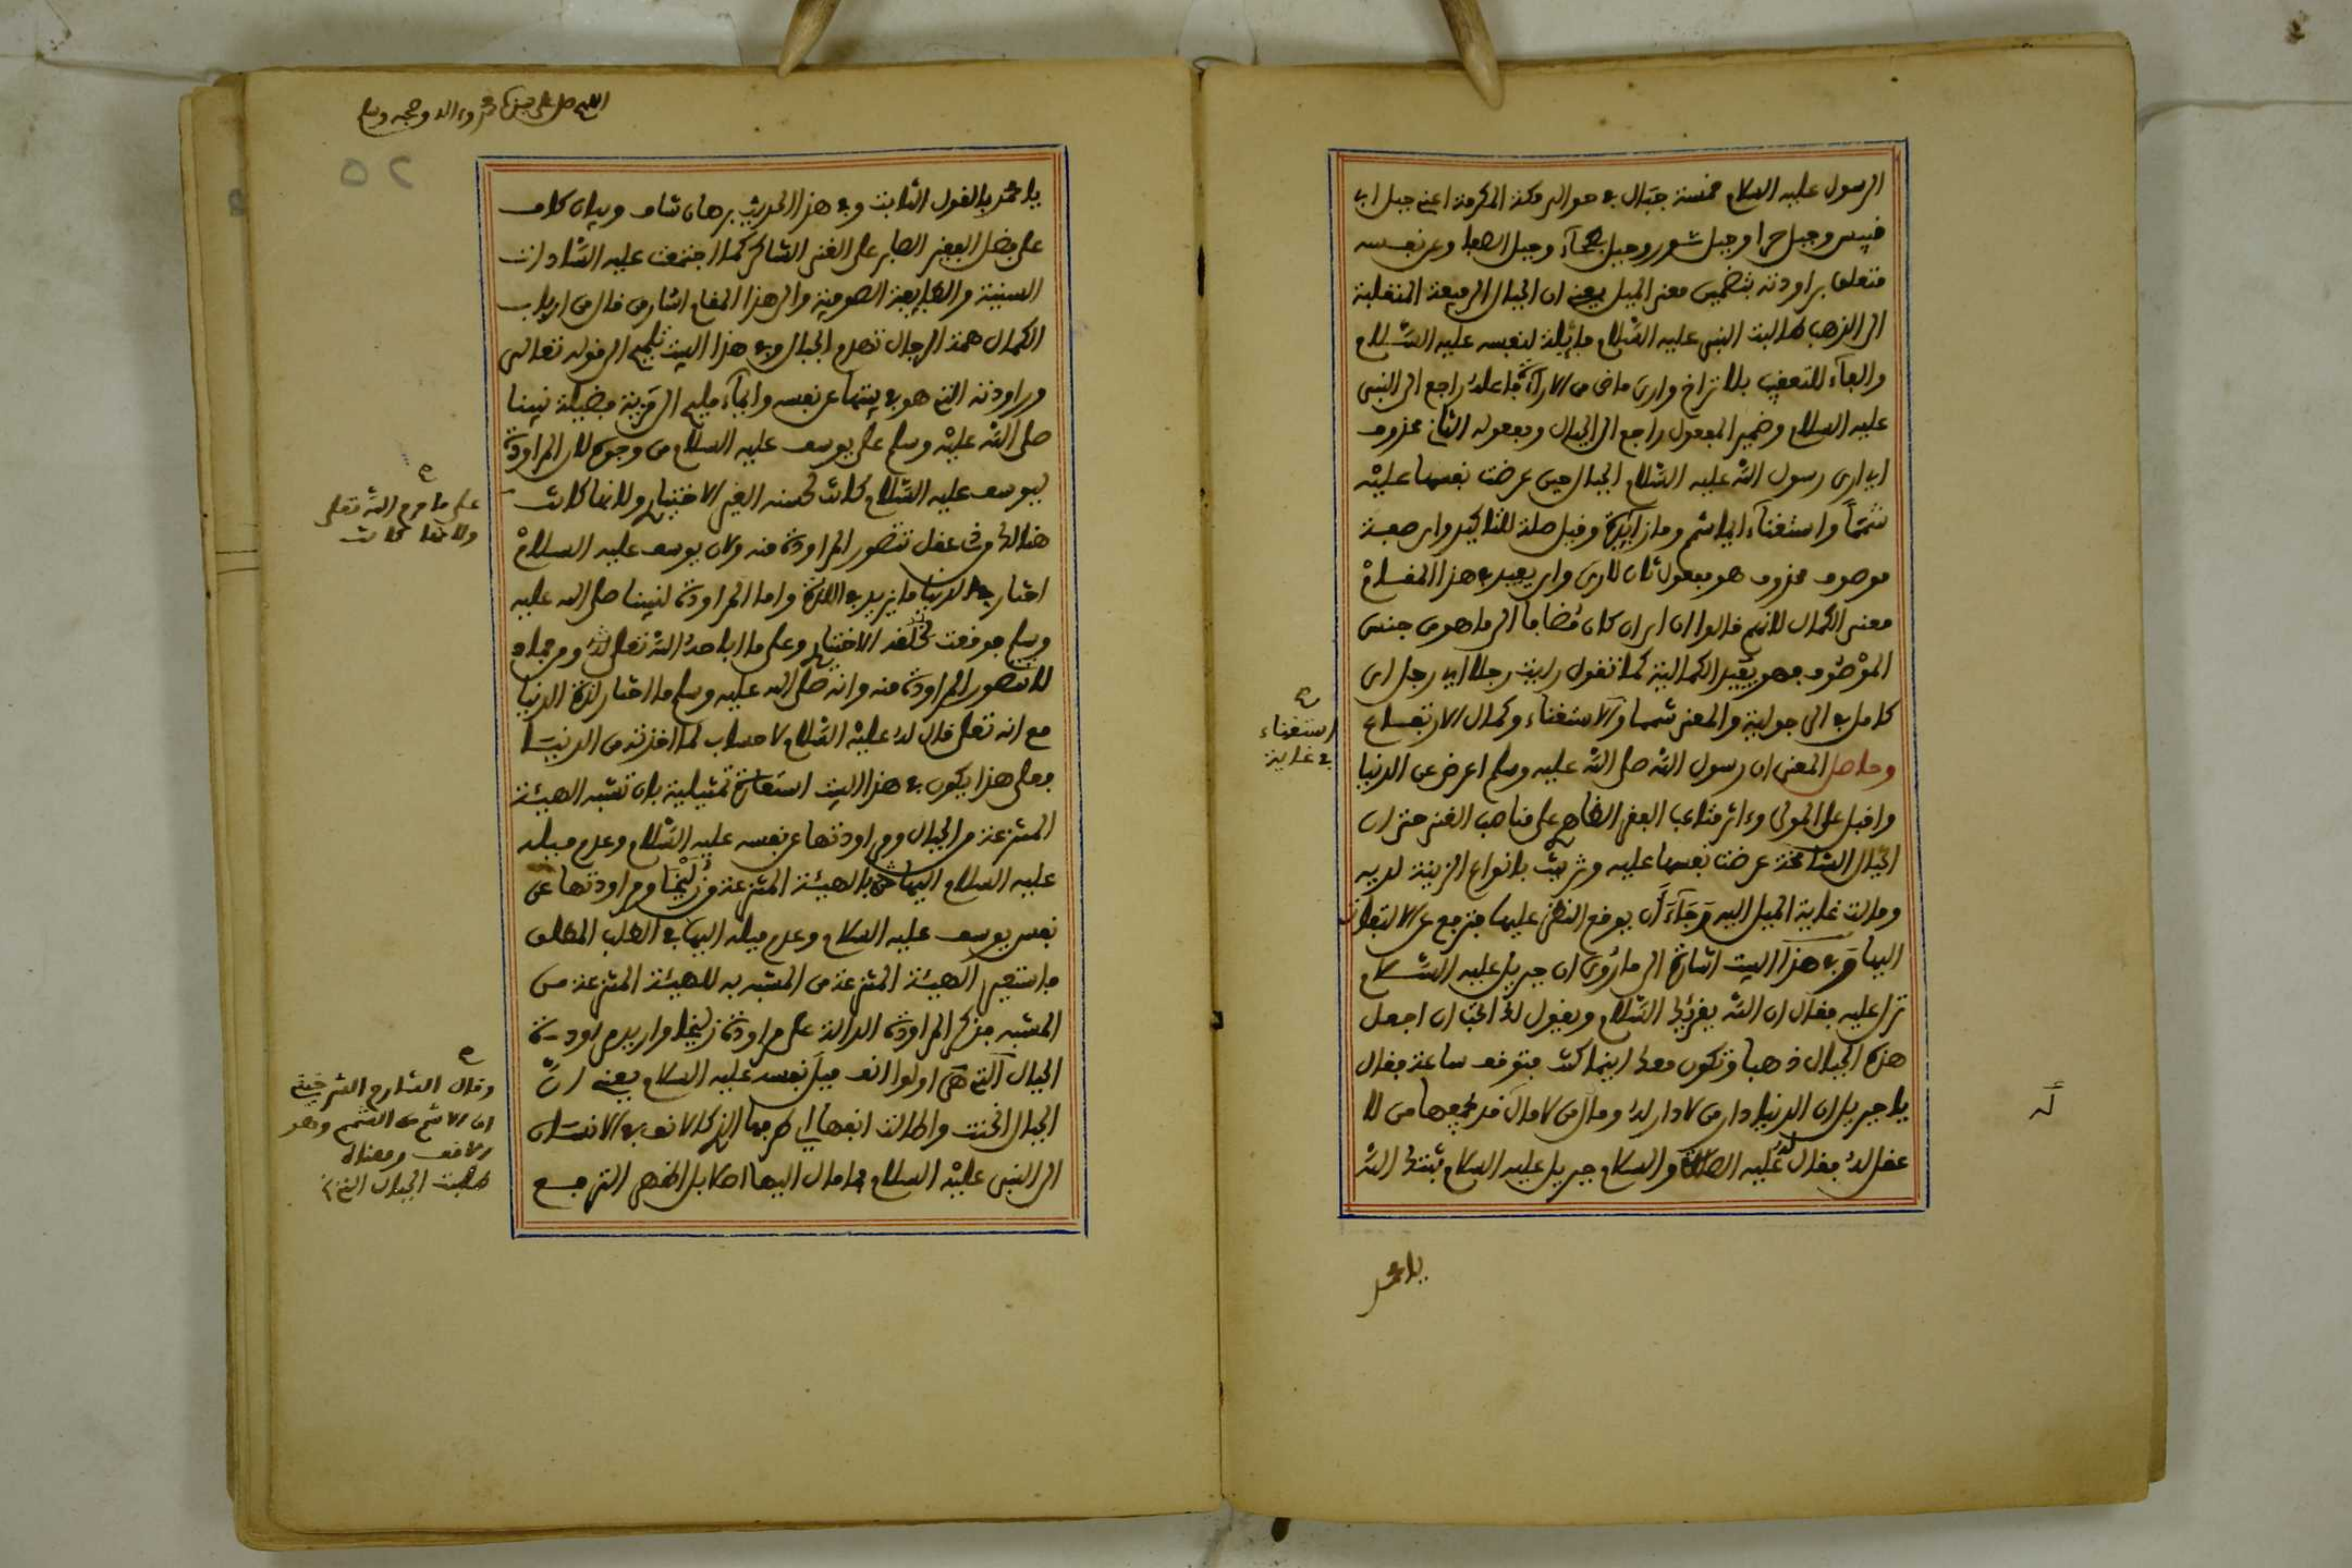 الرسول عليه السلام خمسة جبال في حوالي مكة المكرمة اعني جبل ابي
قبيس وجبل حرا وجبل ثور وجبل وجبل الصفا وعن نفسه
متعلق براودته بتضمين معنى الميل يعني ان الجبال الرفيعة المنقلبة
الى الذهب طالبت النبي عليه السلام مائلة لنفسه عليه السلام
والفاء للتعقيب بلا تراخ وارى ماض من الاراءة فاعله راجع الى النبي
عليه السلام وضمير المفعول راجع الى الجبال ومفعوله الثاني محذوف
اي ارى رسول الله عليه السلام الجبال حين عرضت نفسها عليه
شمما واستغناء ايما شمم وما زائدة وقيل صلة للتاكيد واي صفة
موصوف محذوف هو مفعول ثان لارى واي يفيد في هذا المقام
معنى الكمال لانهم قالوا ان اي ان كان مضافا الى ما هو من جنس
الموصوف فهو يفيد الكمالية كما تقول رايت رجلا اي رجل اي
كامل في الرجولية والمعنى شمما والاستغناء وكمال الارتفاع
وحاصل المعنى ان رسول الله صلى الله عليه وسلم اعرض عن الدنيا
واقبل على المولى وءاثر متاعب الفقر الظاهر على مناصب الغنى حتى ان
الجبال الشامخة عرضت نفسها عليه وتزينت بانواع الزينة لديه
ومالت غاية الميل اليه رجاء ان يوقع النظر عليها فترفع عن الالتفات
اليها وفي هذا البيت اشارة الى ما روي ان جبريل عليه السلام
نزل عليه فقال ان الله يقرئك السلام ويقول لك اتحب ان اجعل
هذه الجبال ذهبا وتكون معك اينما كنت فتوقف ساعة فقال
يا جبريل ان الدنيا دار من لا دار له ومال من لا مال له قد يجمعها من لا
عقل له فقال له عليه الصلاة والسلام جبريل عليه السلام ثبتك الله
استغناء
في غاية
يا محمد
اللهم صل على سيدنا محمد وءاله وصحبه وسلم
52
يا محمد بالقول الثابت وفي هذا الحديث برهان شاف وبيان كاف
على فضل الفقير الصابر على الغني الشاكر كما اجتمعت عليه السادات
السنية والطايفة الصوفية والى هذا المقام اشار من قال من ارباب
الكمال همة الرجال تهدم الجبال وفي هذا البيت تلميح الى قوله تعالى
وراودته التي هو في بيتها عن نفسه وايماء مليح الى مزية فضيلة نبينا
صلى الله عليه وسلم على يوسف عليه السلام من وجوه لان المراودة
ليوسف عليه السلام كانت لحسنه الغير الاختياري ولانها كانت
هنالك من عقل تتصور المراودة منه ولان يوسف عليه السلام
اختار في الدنيا ما يزيد في اللذة واما المراودة لنبينا صلى الله عليه
وسلم فوقعت لخلقه الاختياري وعلى ما اباحه الله تعالى له ومن جماد
لا تتصور المراودة منه وانه صلى الله عليه وسلم ما اختار لذة الدنيا
مع انه تعالى قال له عليه السلام لا حساب لما اخذته من الدنيا
فعلى هذا يكون في هذا البيت استعارة تمثيلية بان تشبه الهيئة
المنتزعة من الجبال ومراودتها عن نفسه عليه السلام وعدم ميله
عليه السلام اليها بالهيئة المنتزعة من زليخا ومراودتها عن
نفس يوسف عليه السلام وعدم ميله اليها في الطلب المطلق
فاستعير الهيئة المنتزعة من المشبه به للهيئة المنتزعة من
المشبه فذكر المراودة الدالة على مراودة زليخا واريد مراودة
الجبال التي هي اولوا انف ميل نفسه عليه السلام يعني ان
الجبال انحنت واطالت انفها اي طرفها الذي كالانف في الانسان
الى النبي عليه السلام فما مال اليها اصلا بل اظهر الترفع
على ما حرم الله تعالى
ولانها كانت
وقال الشارح الشرخيتي
ان الاشم من الشمم وهو
الانف ومعناه
طلبت الجبال التي